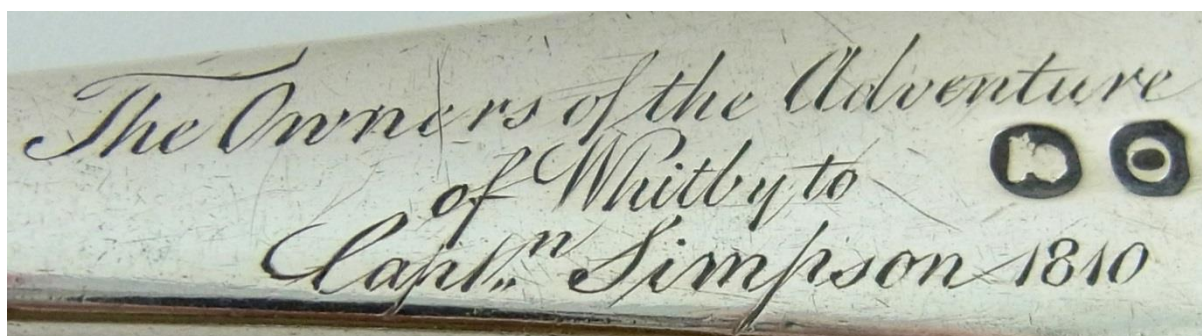 The Owners of the Adventure
of Whitby to
Capt.ⁿ Simpson 1810
O